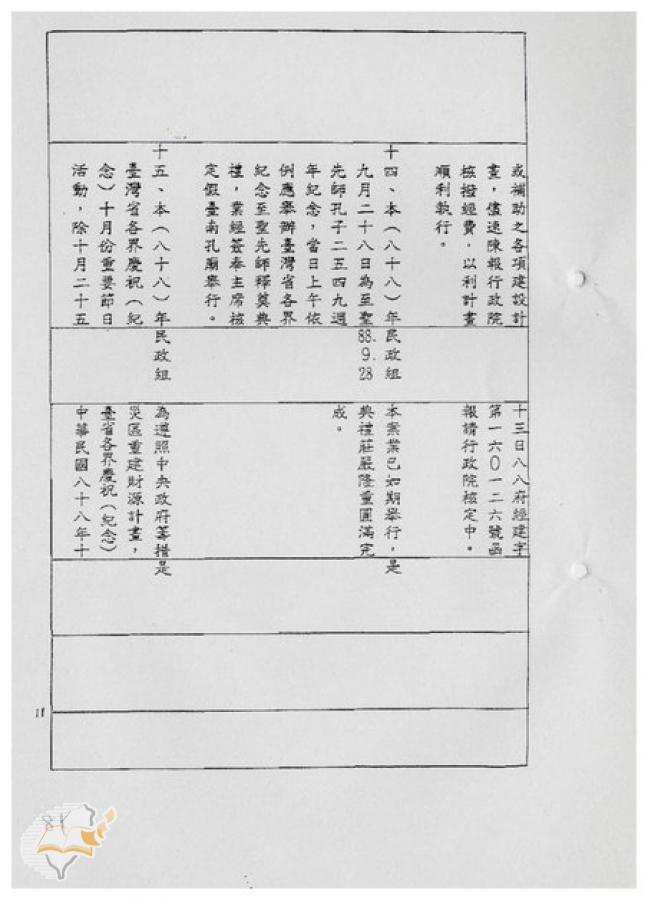 或補助之各項建設計
畫，儘速陳報行政院
核撥經費，以利計畫
順利執行。
十三日八八府經建字
第一六０一二六號函
報請行政院核定中。
十四、本（八十八）年
九月二十八日為至聖
先師孔子二五四九週
年紀念，當日上午依
例應舉辦臺灣省各界
紀念至聖先師釋奠典
禮，業經簽奉主席核
定假臺南孔廟舉行。
民政組
88.9.28
本案業已如期舉行，
典禮莊嚴隆重圓滿完
成。
是
十五、本（八十八）年
臺灣省各界慶祝（紀
念）十月份重要節日
活動，除十月二十五
民政組
為遵照中央政府籌措
災區重建財源計畫，
臺省各界慶祝（紀念）
中華民國八十八年十
是
11
81